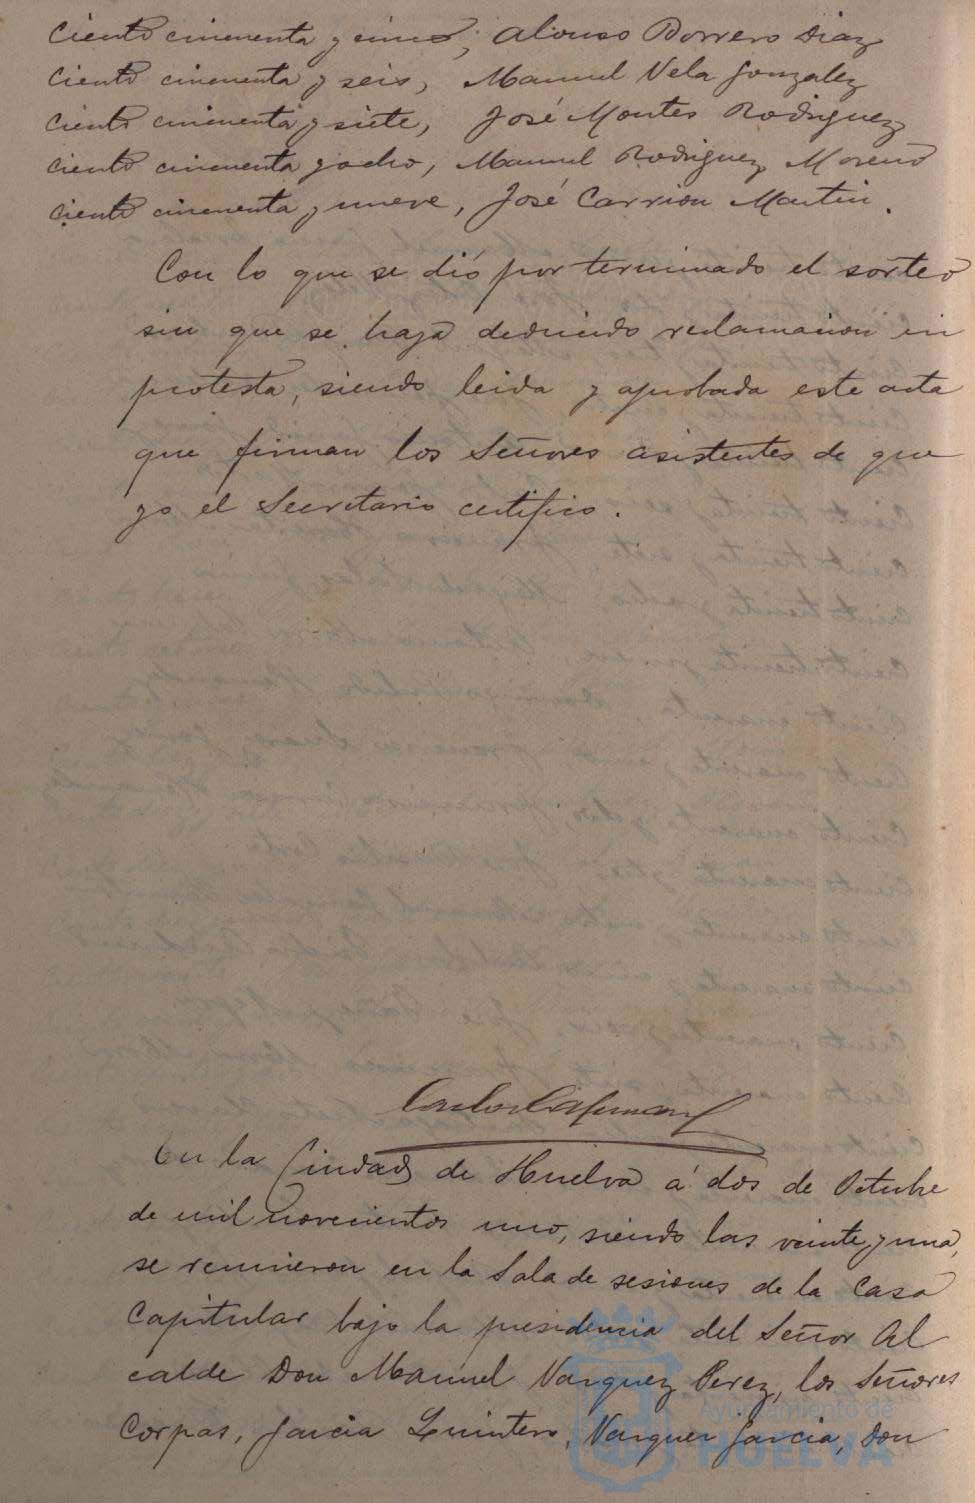 Ciento cincuenta y cinco, Alonso Borrero Diaz
Ciento cincuenta y seis, Manuel Vela Gonzalez
Ciento cincuenta y siete, José Montes Rodriguez
Ciento cincuenta y ocho, Manuel Rodriguez Moreno
Ciento cincuenta y nueve, José Carrion Martin.
Con lo que se dió por terminado el sorteo
sin que se haya deducido reclamacion ni
protesta, siendo leida y aprobada este acta
que firman los Señores asistentes de que
yo el Secretario certifico.
En la Ciudad de Huelva á dos de Octubre
de mil novecientos uno, siendo las veinte y una,
se reunieron en la Sala de sesiones de la Casa
Capitular bajo la presidencia del Señor Al
calde Don Manuel Vazquez Perez, los Señores
Corpas, Garcia Quintero, Vazquez Garcia, Don
Ayuntamiento de
HUELVA